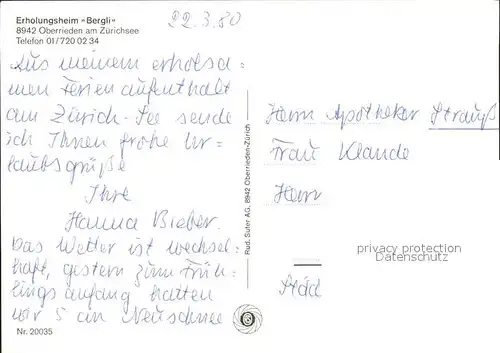 Erholungsheim «Bergli»
8942 Oberrieden am Zürichsee
Telefon 01/720 02 34
22.3.80
Aus meinem erholsa-
men Ferienaufenthalt
am Zürich-See sende
ich Ihnen frohe Ur-
laubsgrüße
Ihre
Hanna Bieber.
Das Wetter ist wechsel-
haft, gestern zum Früh-
lingsanfang hatten
wir 5 cm Neuschnee
Nr. 20035
Rud. Suter AG, 8942 Oberrieden-Zürich
Herrn Apotheker Strauß
Frau Klaude
Herrn
privacy protection
Datenschutz